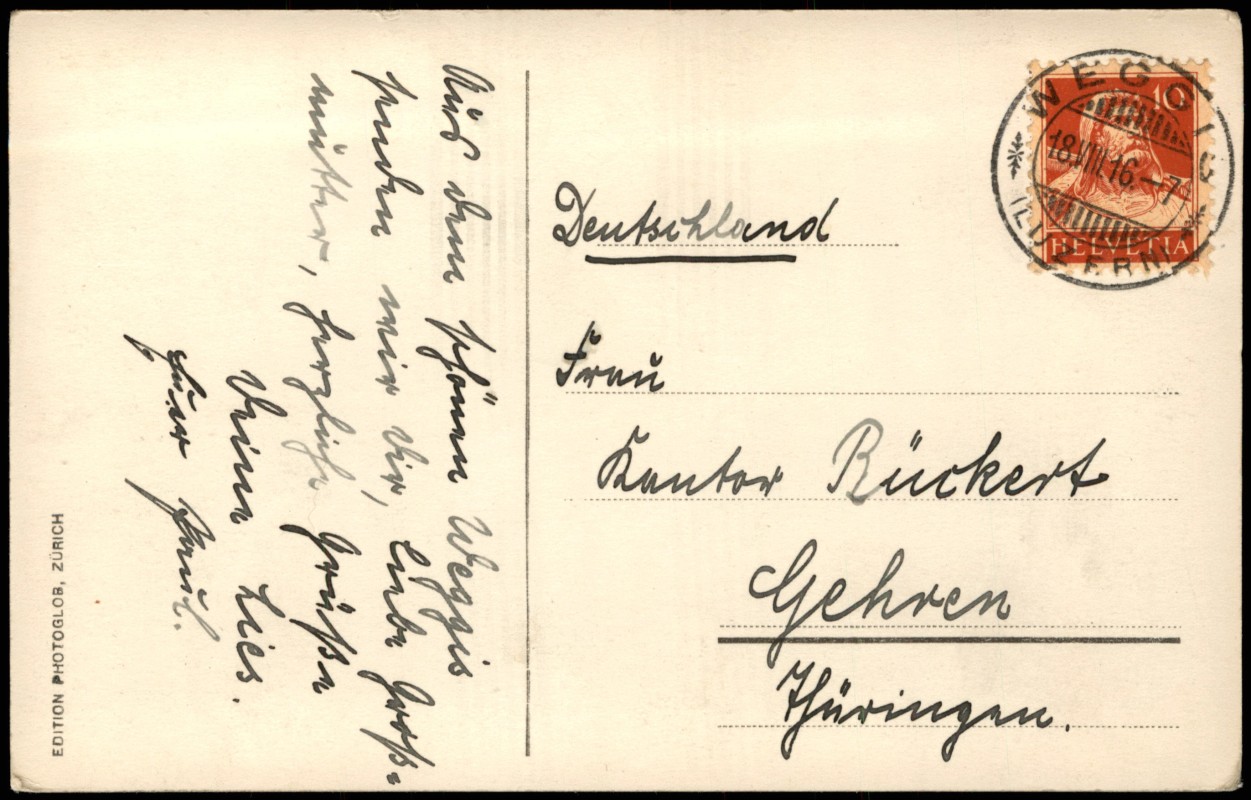 Aus dem schönen Weggis
senden wir Dir, liebe Groß-
mutter, herzliche Grüße
Deine Lies.
Euer Paul.
EDITION PHOTOGLOB, ZÜRICH
WEGGIS
18.VIII.16.–7
(LUZERN)
10
HELVETIA
Deutschland
Frau
Kantor Rückert
Gehren
Thüringen.